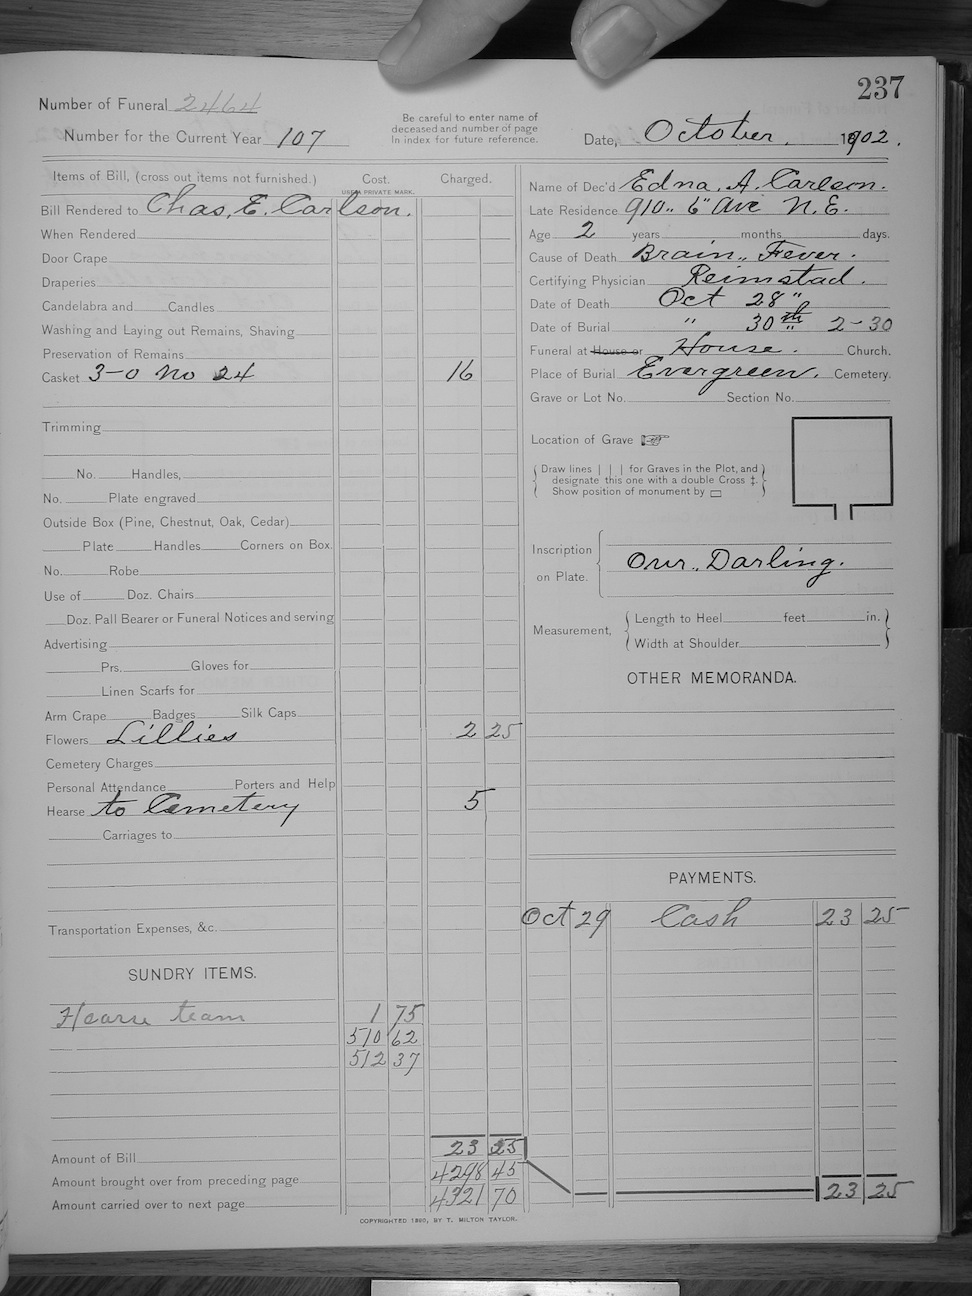 237
Number of Funeral 2464
Number for the Current Year 107
Be careful to enter name of
deceased and number of page
in index for future reference.
Date, October, 1902.
Items of Bill, (cross out items not furnished.) Cost. Charged.
USE A PRIVATE MARK.
Bill Rendered to Chas, E. Carlson.
When Rendered
Door Crape
Draperies
Candelabra and Candles
Washing and Laying out Remains, Shaving
Preservation of Remains
Casket 3-0 No 24 16
Trimming
No. Handles,
No. Plate engraved
Outside Box (Pine, Chestnut, Oak, Cedar)
Plate Handles Corners on Box.
No. Robe
Use of Doz. Chairs
Doz. Pall Bearer or Funeral Notices and serving
Advertising
Prs. Gloves for
Linen Scarfs for
Arm Crape Badges Silk Caps
Flowers Lillies 2 25
Cemetery Charges
Personal Attendance Porters and Help
Hearse to Cemetery 5
Carriages to
Transportation Expenses, &c.
SUNDRY ITEMS.
Hearse team 1 75
510 62
512 37
Amount of Bill 23 25
Amount brought over from preceding page 4298 45
Amount carried over to next page 4321 70
Name of Dec'd Edna. A. Carlson.
Late Residence 910.. 6" Ave N. E.
Age 2 years months days.
Cause of Death Brain.. Fever.
Certifying Physician Reimstad.
Date of Death Oct 28"
Date of Burial " 30th 2-30
Funeral at House or House. Church.
Place of Burial Evergreen. Cemetery.
Grave or Lot No. Section No.
Location of Grave ☞
Draw lines | | | for Graves in the Plot, and
designate this one with a double Cross ‡.
Show position of monument by ▭
Inscription
on Plate. Our.. Darling.
Measurement, Length to Heel feet in.
Width at Shoulder
OTHER MEMORANDA.
PAYMENTS.
Oct 29 Cash 23 25
23 25
COPYRIGHTED 1890, BY T. MILTON TAYLOR.